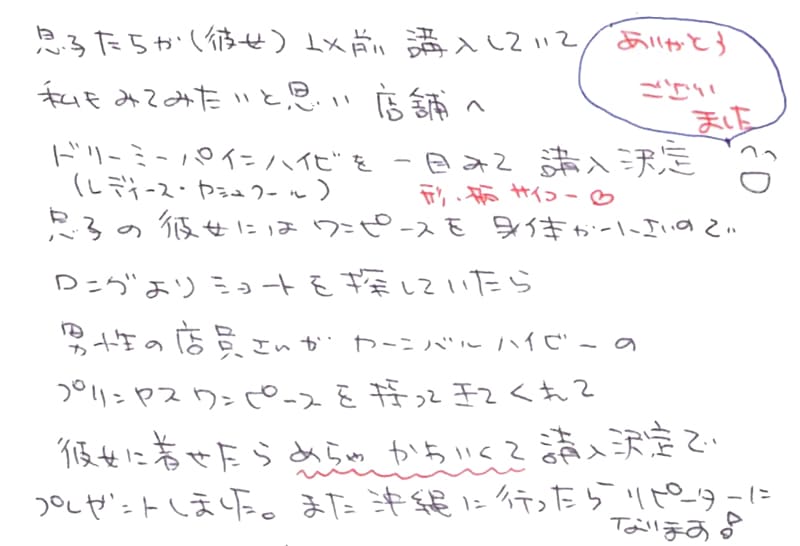 息子たちが(彼女)以前 講入していて
私もみてみたいと思い 店舗へ
ドリーミーパインハイビを 一目みて 講入決定
(レディース・カシュクール)
形、柄 サイコー♡
息子の彼女にはワンピースを 身体が小さいので
ロングよりショートを探していたら
男性の店員さんが カーニバルハイビーの
プリンセスワンピースを持ってきてくれて
彼女に着せたら めちゃ かわいくて 講入決定で
プレゼントしました。また沖縄に行ったら リピーターに
なります!
ありがとう
ござい
ました